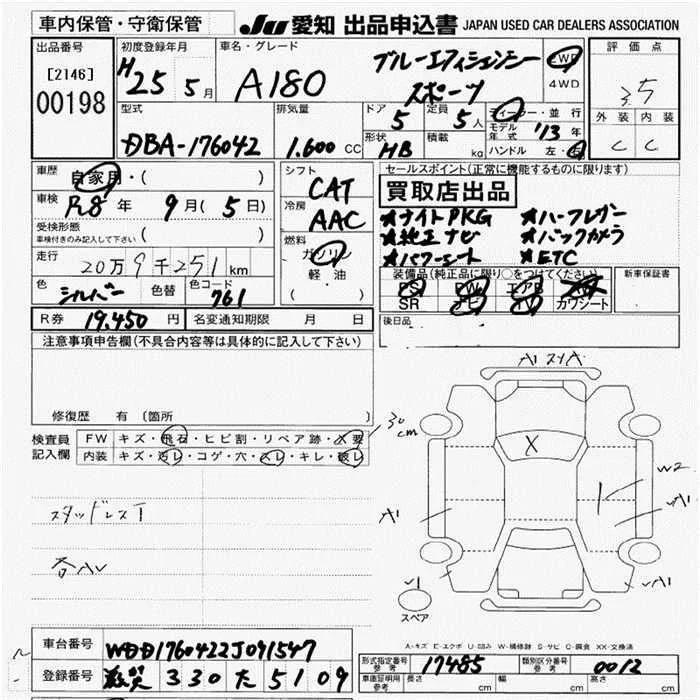 車内保管・守衛保管
JU 愛知 出品申込書 JAPAN USED CAR DEALERS ASSOCIATION
出品番号
[2146]
00198
初度登録年月
H 25 5月
車名・グレード
A180 ブルーエフィシェンシー
スポーツ
2WD
4WD
評価点
3.5
外装 内装
C C
型式
DBA-176042
排気量
1.600 CC
ドア
5
定員
5人
形状
HB
積載
kg
ディーラー・並行
モデル年式 '13年
ハンドル 左・右
車歴 自家用・( )
車検 R8年 9月(5日)
受検形態
車検付きのみ記入して下さい ( )
走行 20万9千251km
色 シルバー 色替 色コード 761
シフト
CAT
冷房
AAC
燃料
ガソリン
軽油
( )
セールスポイント(正常に機能するものに限ります)
買取店出品
★ナイトPKG ★ハーフレザー
★純正ナビ ★バックカメラ
★パワーシート ★ETC
装備品(純正品に限り○をつけてください)
PS PW エアB AW
SR ナビ TV カワシート
新車保証書
後日品
R券 19,450円 名変通知期限 月 日
注意事項申告欄(不具合内容等は具体的に記入して下さい)
修復歴 有 〔箇所
検査員記入欄
FW キズ・飛石・ヒビ割・リペア跡・X要
内装 キズ・汚レ・コゲ・穴・スレ・キレ・破レ
30cm
スタッドレスT
A1
X
W2
A1
A1
スペア
A-キズ E-エクボ U-凹み W-補修跡 S-サビ C-腐食 XX-交換済
車台番号 WDD1760422J091547
登録番号 滋賀 330 た 5109
形式指定番号 参考 17485
類別区分番号 参考 0012
車庫証明用 参考 長さ cm 幅 cm 高さ cm